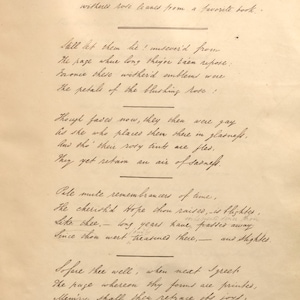 wither'd rose leaves from a favorite book.
Still let them lie! unsever'd from
The page where long they've been repose.
these wither'd emblems were
The petals of the blushing rose!
Though faded now, they then were gay
As she who places them there in gladness.
And tho' their rosy tints are fled.
They yet retain an air of sadness.
Pale mute remembrancers of time.
He cherish'd Hope thou raises, is blighted.
Like thee, — long years have passed away
Since thou wert treasured there, — and slighted
So fare thee well. when next I greet
The page whereon thy forms are printed.
shall then retrace the